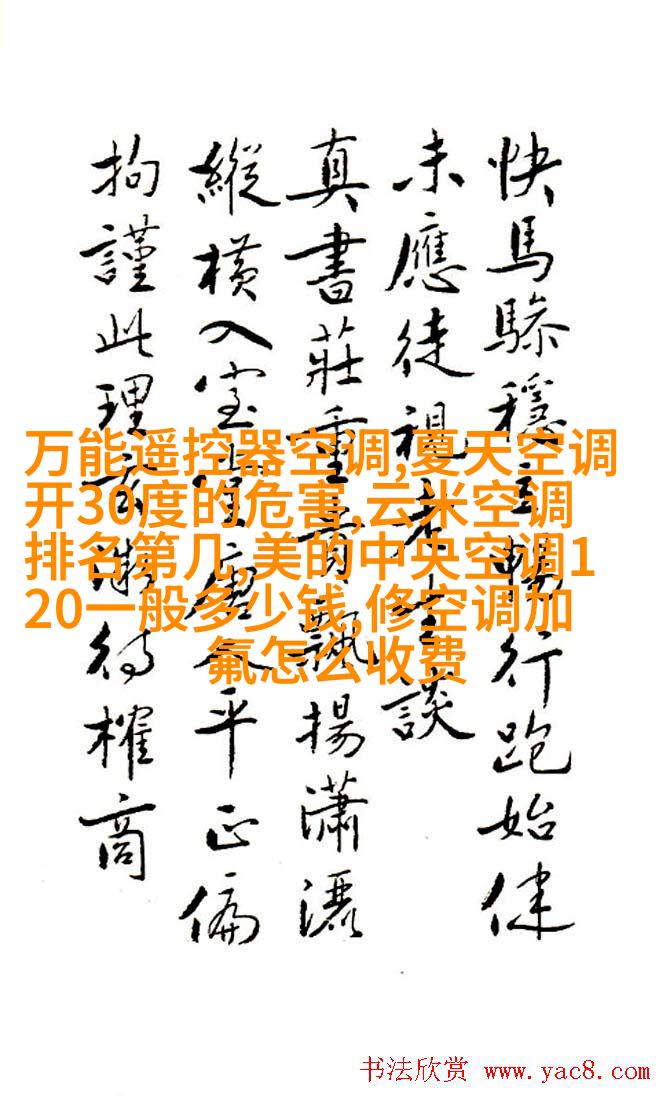 快馬驂穩暢行跑始
未應徒視老生談
真書莊重飄揚瀟灑
縱橫入室平正偏
拘謹此理待榷商
万能遥控器空调,夏天空调
开30度的危害,云米空调
排名第几,美的中央空调1
20一般多少钱,修空调加
氟怎么收费
书法欣赏 www.yac8.com